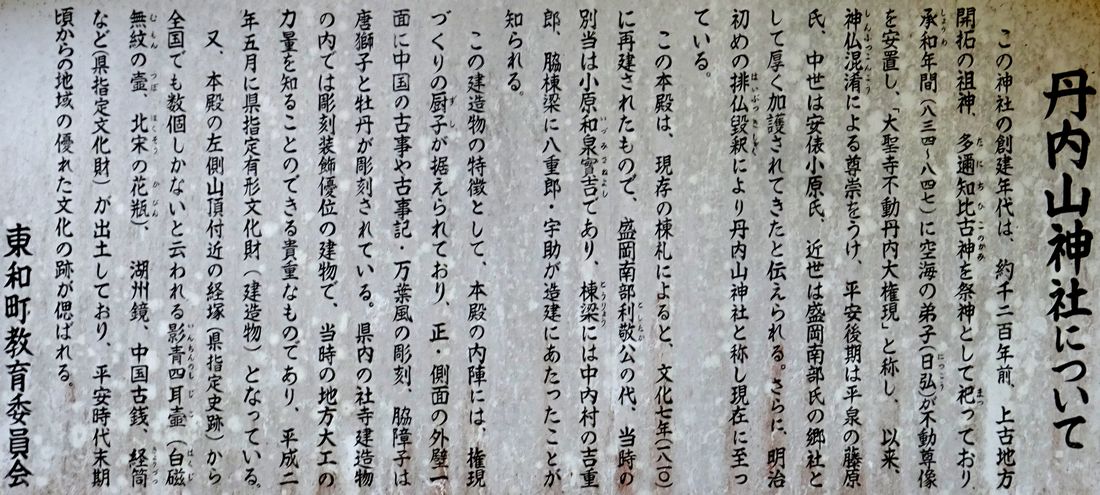 丹内山神社について
この神社の創建年代は、約千二百年前、上古地方
開拓の祖神、多邇知比古神を祭神として祀っており
承和年間(八三四〜八四七)に空海の弟子(日弘)が不動尊像
を安置し、「大聖寺不動丹内大権現」と称し、以来、
神仏混淆による尊崇をうけ、平安後期は平泉の藤原
氏、中世は安俵小原氏、近世は盛岡南部氏の郷社と
して厚く加護されてきたと伝えられる。さらに、明治
初めの排仏毀釈により丹内山神社と称し現在に至っ
ている。
この本殿は、現存の棟札によると、文化七年(一八一〇)
に再建されたもので、盛岡南部利敬公の代、当時の
別当は小原和泉實吉であり、棟梁には中内村の吉重
郎、脇棟梁に八重郎・宇助が造建にあたったことが
知られる。
この建造物の特徴として、本殿の内陣には、権現
づくりの厨子が据えられており、正・側面の外壁一
面に中国の古事や古事記・万葉風の彫刻、脇障子は
唐獅子と牡丹が彫刻されている。県内の社寺建造物
の内では彫刻装飾優位の建物で、当時の地方大工の
力量を知ることのできる貴重なものであり、平成二
年五月に県指定有形文化財(建造物)となっている。
又、本殿の左側山頂付近の経塚(県指定史跡)から
全国でも数個しかないと云われる影青四耳壷(白磁
無紋の壷、北宋の花瓶)、湖州鏡、中国古銭、経筒
など(県指定文化財)が出土しており、平安時代末期
頃からの地域の優れた文化の跡が偲ばれる。
東和町教育委員会